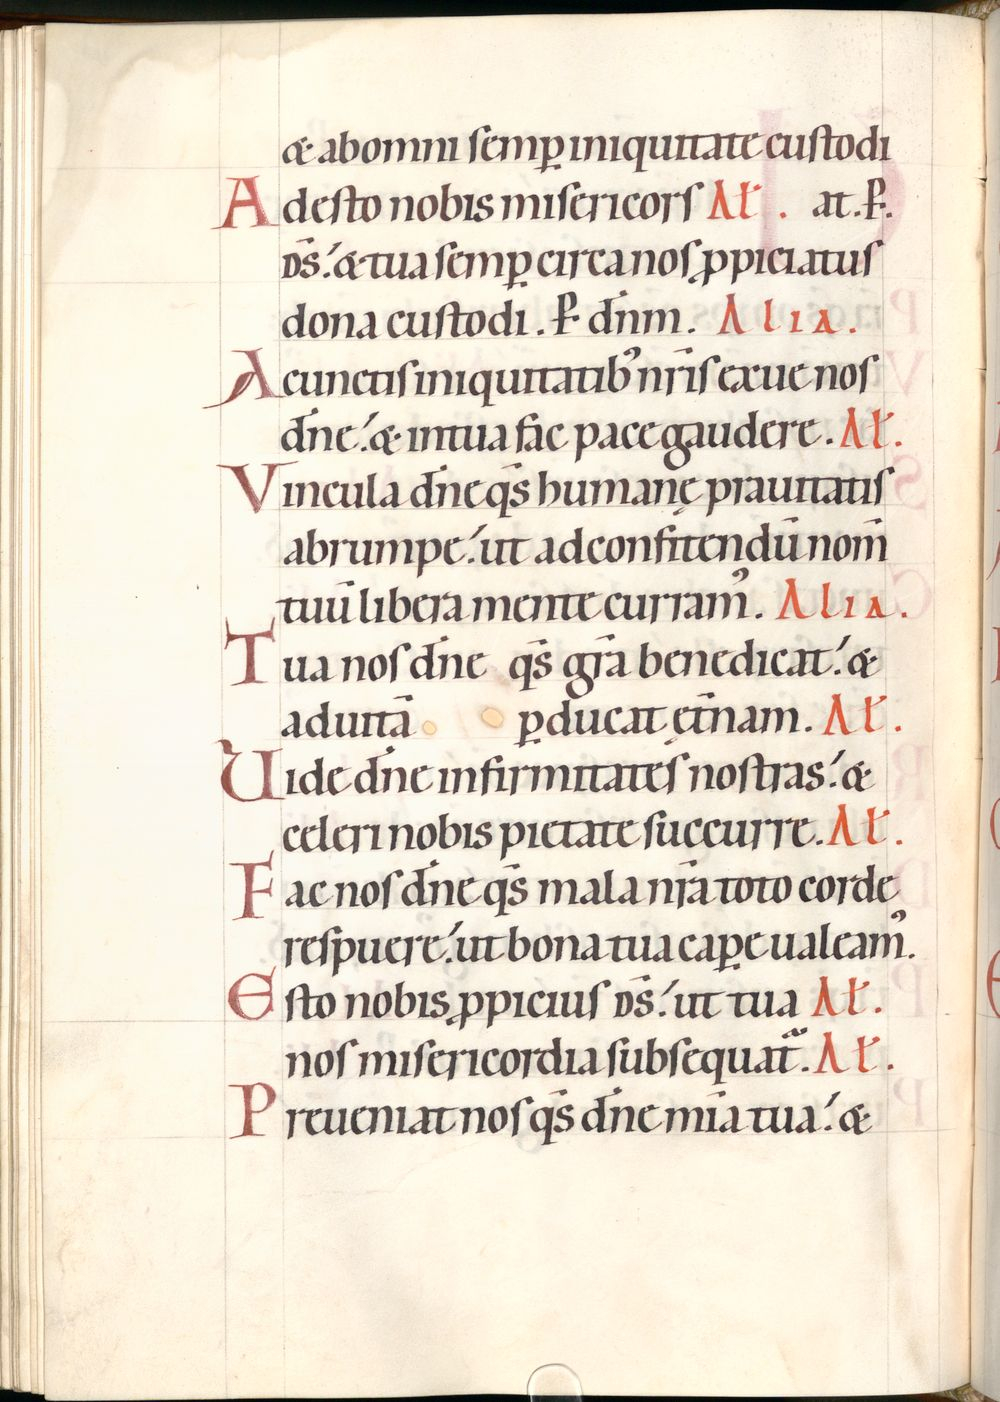 & ab omni semp̲ iniquitate custodi
Adesto nobis misericors Aƚ. at. P̲.
D̅S̅.' & tua semp̲ circa nos p̲pitiatus
dona custodi. P̲ dn̅m. Alia.
A cunctis iniquitatib' nr̅is exue nos
dn̅e.' & in tua fac pace gaudere. Aƚ.
Vincula dn̅e qs̅ humanę prauitatis
abrumpe.' ut ad confitendū nom̅
tuū libera mente curram'. Alia.
Tua nos dn̅e qs̅ gr̅a benedicat.' &
ad uitā p̲ducat ęt̅nam. Aƚ.
Uide dn̅e infirmitates nostras.' &
celeri nobis pietate succurre. Aƚ.
Fac nos dn̅e qs̅ mala nr̅a toto corde
respuere.' ut bona tua cap̲e ualeam'.
Esto nobis p̲picius D̅S̅.' ut tua Aƚ.
nos misericordia subsequat̅. Aƚ.
Preueniat nos qs̅ dn̅e mi̅a tua.' &